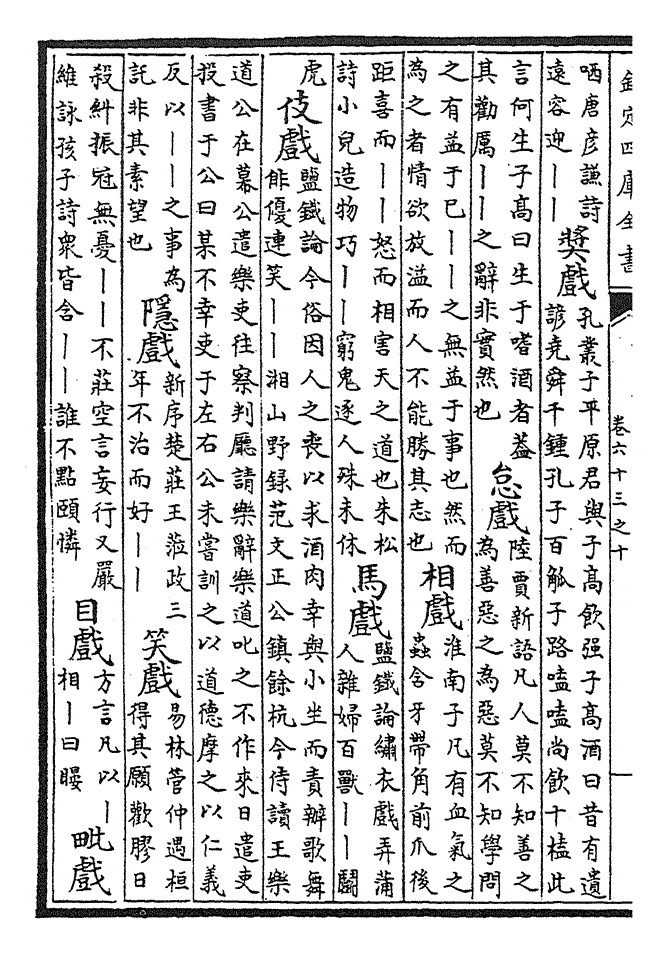 欽定四庫全書
卷六十三之十
哂唐彥謙詩
遠容迎丨丨
獎戲
孔叢子平原君與子高飲强子高酒曰昔有遺
諺堯舜千鍾孔子百觚子路嗑嗑尚飲十榼此
言何生子高曰生于嗜酒者葢
其勸厲丨丨之辭非實然也
怠戲
陸賈新語凡人莫不知善之
為善惡之為惡莫不知學問
之有益于已丨丨之無益于事也然而
為之者情欲放溢而人不能勝其志也
相戲
淮南子凡有血氣之
蟲含牙帶角前爪後
距喜而丨丨怒而相害天之道也朱松
詩小兒造物巧丨丨窮鬼逐人殊未休
馬戲
鹽鐵論繡衣戲弄蒲
人雜婦百獸丨丨鬬
虎
伎戲
鹽鐵論今俗因人之喪以求酒肉幸與小坐而責辦歌舞
俳優連笑丨丨湘山野録范文正公鎮餘杭今侍讀王樂
道公在幕公遣樂吏往察判廳請樂辭樂道叱之不作來日遣吏
投書于公曰某不幸吏于左右公未嘗訓之以道德摩之以仁義
反以丨丨之事為
託非其素望也
隱戲
新序楚莊王蒞政三
年不治而好丨丨
笑戲
易林管仲遇桓
得其願歡膠曰
殺糾振冠無憂丨丨不莊空言妄行又嚴
維詠孩子詩衆皆含丨丨誰不點頤憐
目戲
方言凡以丨
相丨曰䁙
毗戲